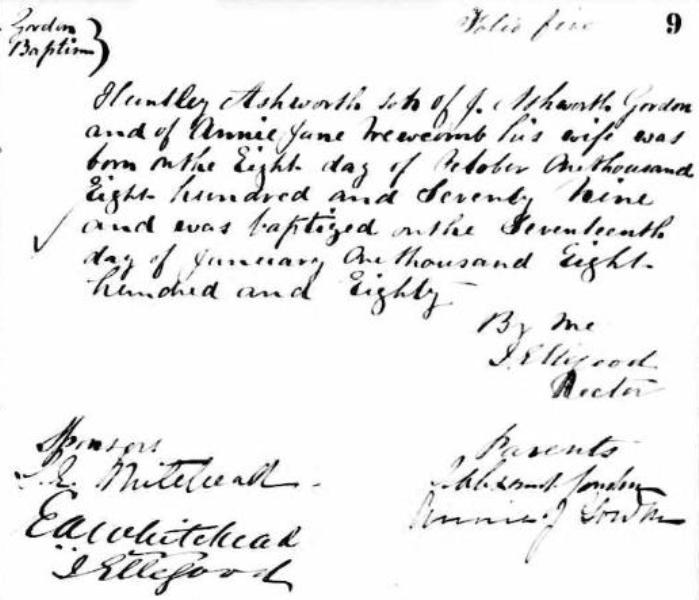 Gordon
Baptism
Folio five 9
Huntley Ashworth son of J. Ashworth Gordon
and of Annie Jane Newcomb his wife was
born on the Eight day of October One thousand
Eight hundred and Seventy Nine
and was baptized on the Seventeenth
day of January One thousand Eight
hundred and Eighty
By Me
J. Ellegood
Rector
Sponsors
Parents
Whitehead
Gordon
E A Whitehead
Annie J Gordon
J Ellegood